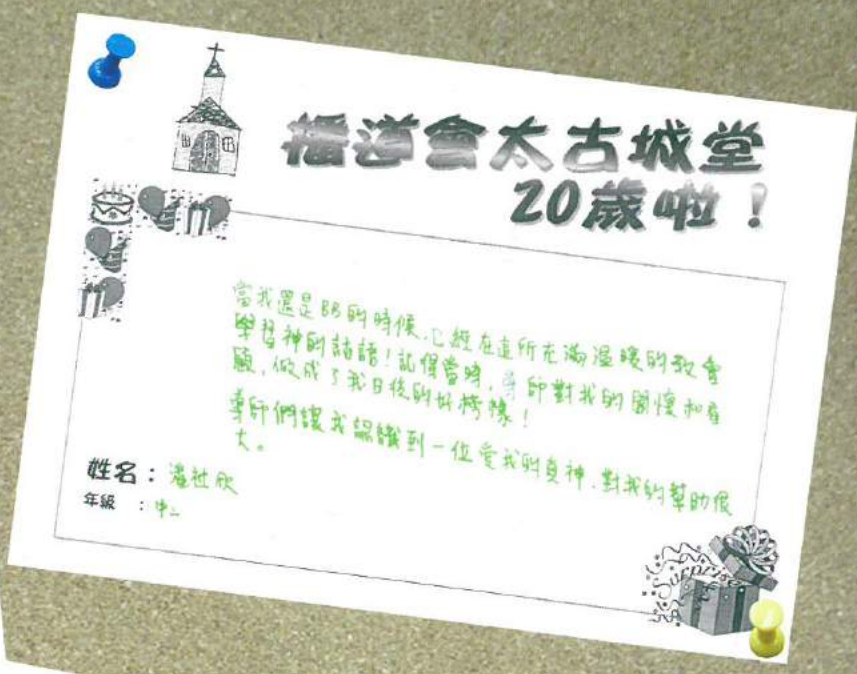 播道會太古城堂
20歲啦！
當我還是BB的時候，已經在這所充滿溫暖的教會
學習神的話語！記得當時，導師對我的關懷和看
顧，做成了我日後的好榜樣！
導師們讓我認識到一位愛我的真神，對我的幫助很
大。
姓名：潘社欣
年級：中二